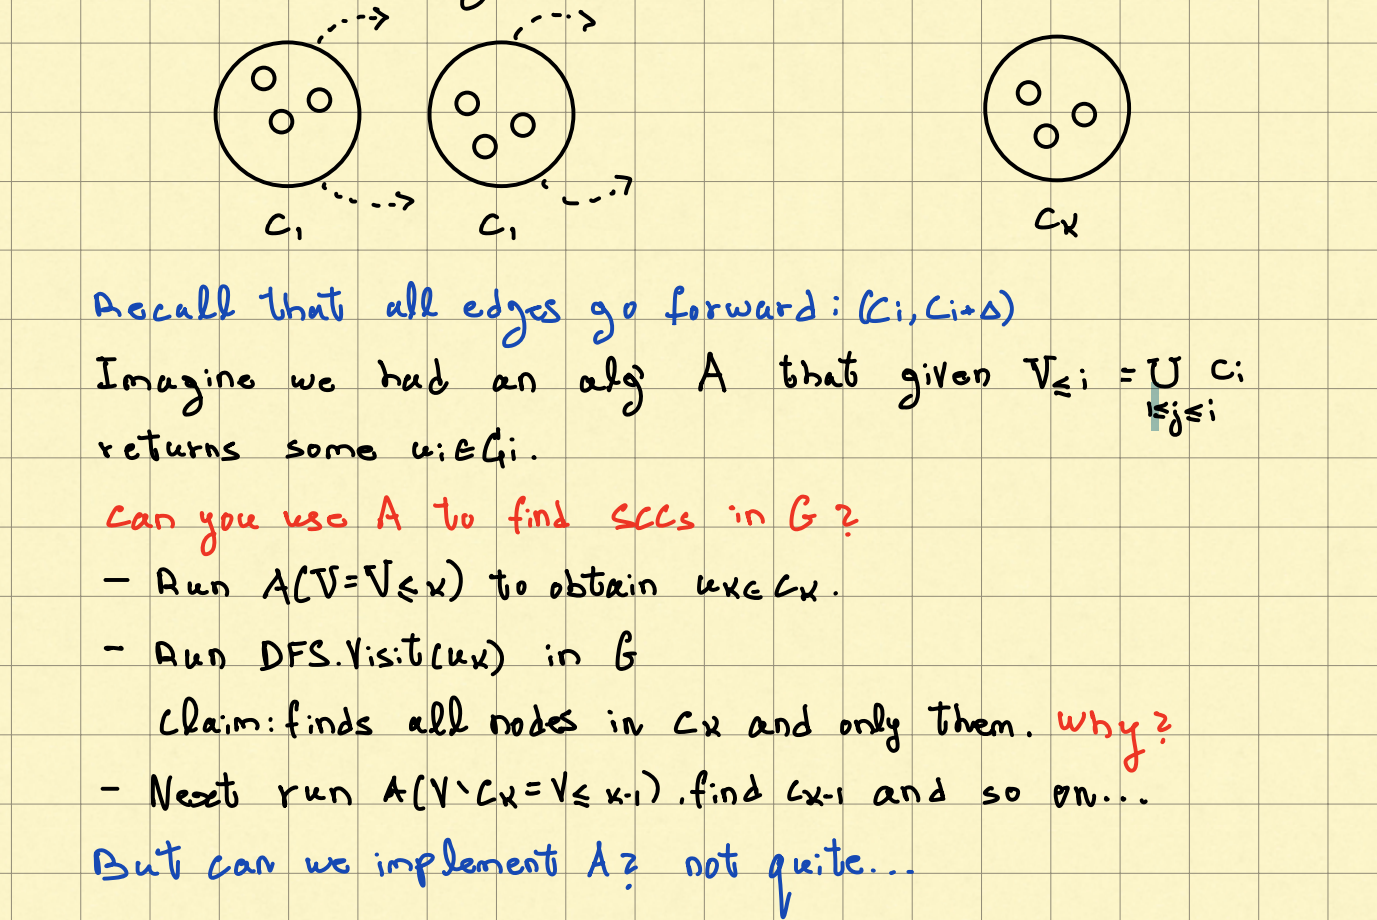 C₁ C₁ Cₖ
Recall that all edges go forward: (Cᵢ, Cᵢ₊Δ)
Imagine we had an alg A that given V≤i = ∪ Cᵢ
1≤j≤i
returns some uᵢ∈Cᵢ.
can you use A to find SCCs in G?
– Run A(V=V≤k) to obtain uₖ∈Cₖ.
– Run DFS.Visit(uₖ) in G
Claim: finds all nodes in Cₖ and only them. Why?
– Next run A(V∖Cₖ=V≤k-1), find Cₖ₋₁ and so on...
But can we implement A? not quite...